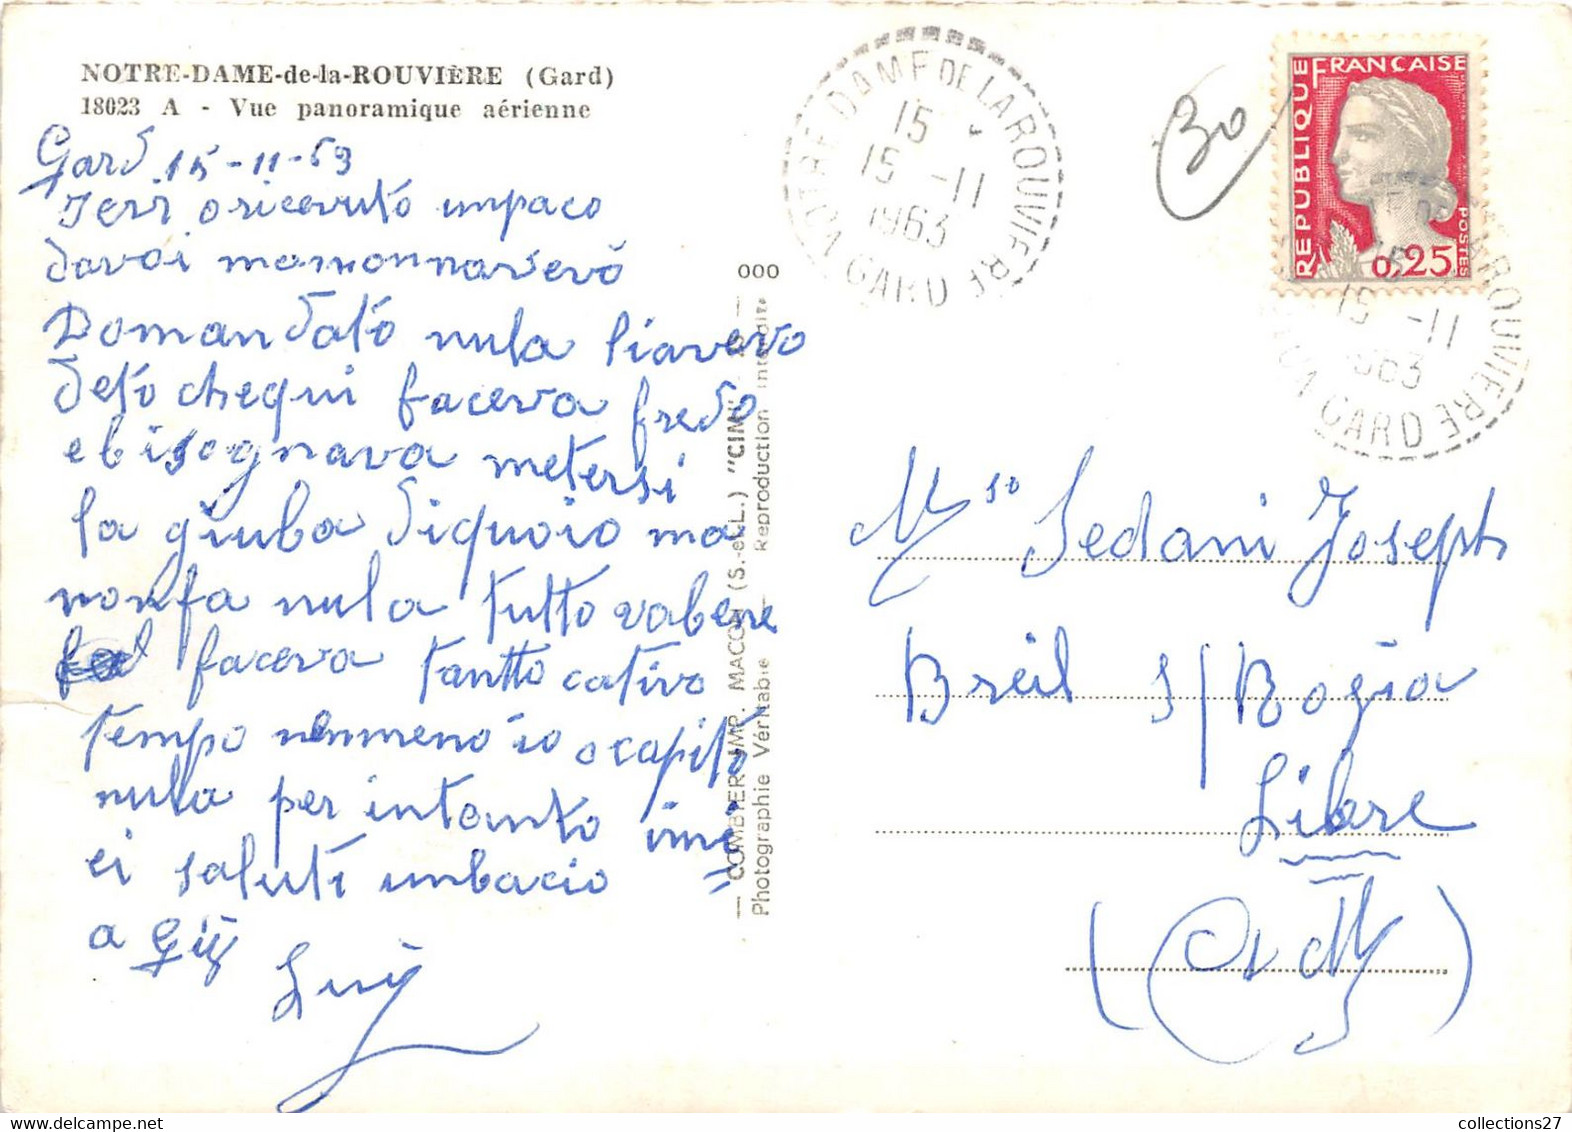 NOTRE-DAME-de-la-ROUVIÈRE (Gard)
18023 A - Vue panoramique aérienne
Gard 15-11-63
Ieri o ricevuto unpaco
davoi mamonnavevo
Domandato nula liavevo
deto chequi faceva fredo
e bisognava metersi
la giuba diquoio ma
nonfa nula tutto vabene
faceva tantto cativo
tempo nemmeno io o capito
nula per intanto invi
ei saluti unbacio
a Giĝ
Luiĝ
000
— COMBIER IMP. MACON (S.-et-L.) "CIM" —
Photographie Véritable — Reproduction interdite
NOTRE DAME DE LA ROUVIERE
15
15 -11
1963
GARD
30
REPUBLIQUE FRANÇAISE
POSTES
0,25
LA ROUVIERE
15
15 -11
1963
GARD
Mr Sedani Joseph
Breil s/Rogia
Libre
(A M)
collections27